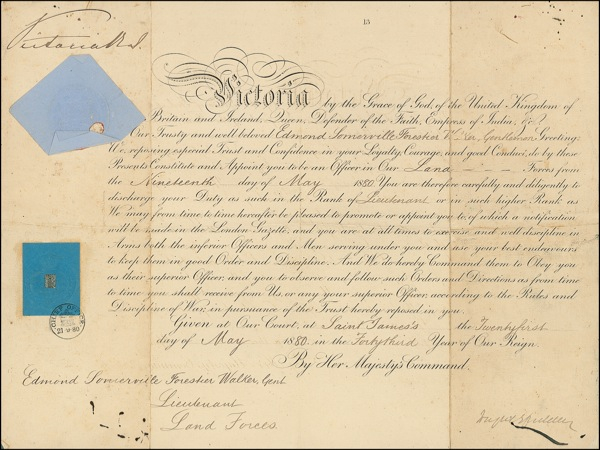 15
Victoria R.I.
Victoria by the Grace of God, of the United Kingdom of
Britain and Ireland, Queen, Defender of the Faith, Empress of India, &c.
To Our Trusty and well beloved Edmond Somerville Forestier Walker, Gentleman Greeting:
We, reposing special Trust and Confidence in your Loyalty, Courage, and good Conduct, do by these
Presents Constitute and Appoint you to be an Officer in Our Land Forces from
the Nineteenth day of May 1880. You are therefore carefully and diligently to
discharge your Duty as such in the Rank of Lieutenant or in such higher Rank as
We may from time to time hereafter be pleased to promote or appoint you to, of which a notification
will be made in the London Gazette, and you are at all times to exercise and well discipline in
Arms both the inferior Officers and Men serving under you and use your best endeavours
to keep them in good Order and Discipline. And We do hereby Command them to Obey you
as their superior Officer, and you to observe and follow such Orders and Directions as from time
to time you shall receive from Us, or any your superior Officer, according to the Rules and
Discipline of War, in pursuance of the Trust hereby reposed in you.
Given at Our Court, at Saint James's the Twentyfirst
day of May 1880 in the Fortythird Year of Our Reign.
By Her Majesty's Command.
Edmond Somerville Forestier Walker, Gent
Lieutenant
Land Forces